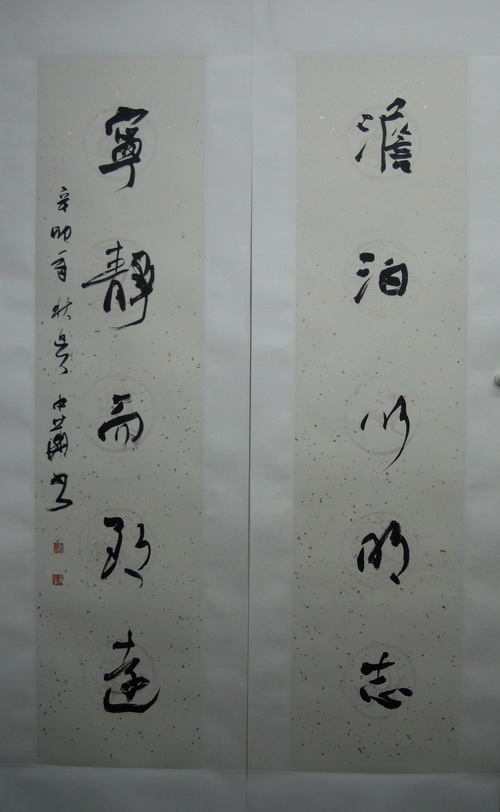 澹泊以明志
寧靜而致遠
辛卯年秋吴中书